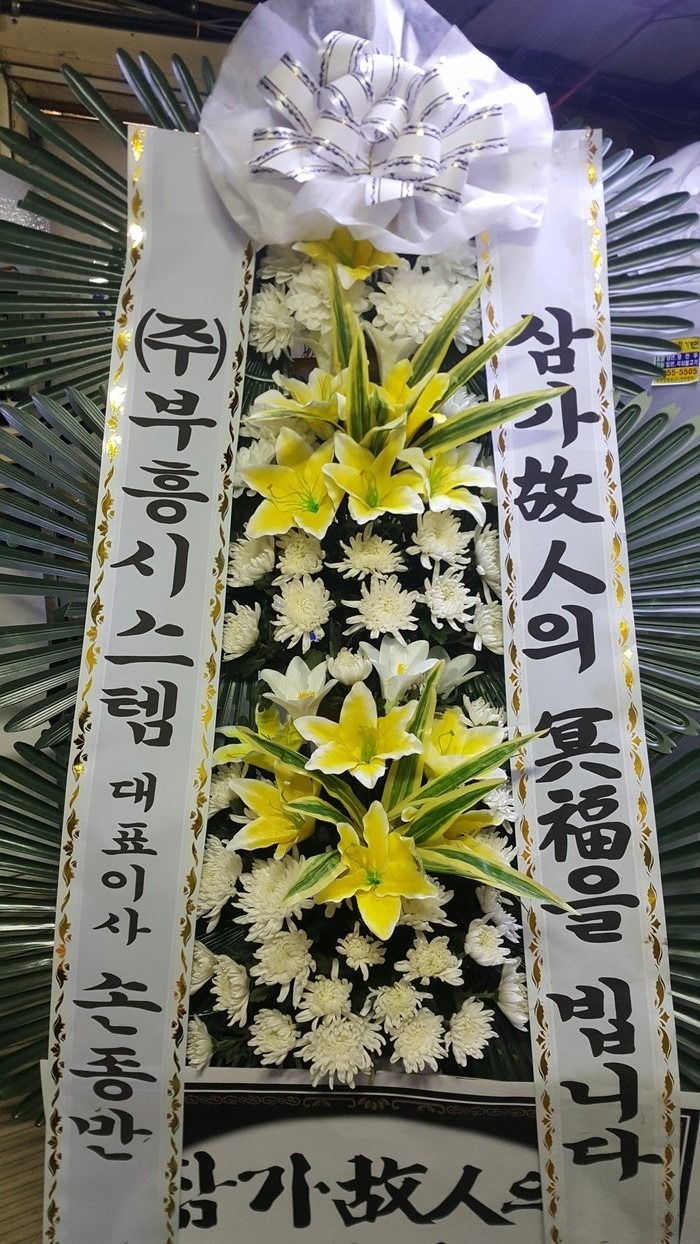 (주)부흥시스템 대표이사 손종반
삼가故人의 冥福을 빕니다
삼가故人의
55-5505